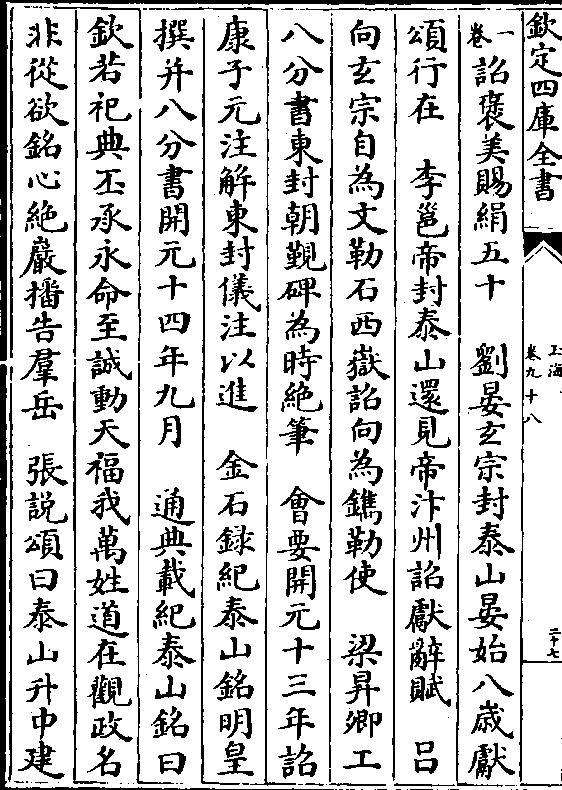 欽定四庫全書
玉海
卷九十八
二十七
一卷詔褒美賜絹五十　劉晏玄宗封泰山晏始八歲獻
頌行在　李邕帝封泰山還見帝汴州詔獻辭賦　呂
向玄宗自為文勒石西嶽詔向為鐫勒使　梁昇卿工
八分書東封朝覲碑為時絶筆　會要開元十三年詔
康子元注解東封儀注以進　金石録紀泰山銘明皇
撰并八分書開元十四年九月　通典載紀泰山銘曰
欽若祀典丕承永命至誠動天福我萬姓道在觀政名
非從欲銘心絶巖播告羣岳　張説頌曰泰山升中建